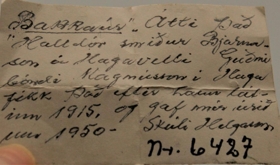 "Baukaur". Átti það
"Halldór smiður Bjarna-
son í Hagavelli Guðm
bóndi Magnússon í Haga
fékk það eftir hann lát-
um 1915, og gaf mér árið
1950-
Skúli Helgason
Nr. 6427